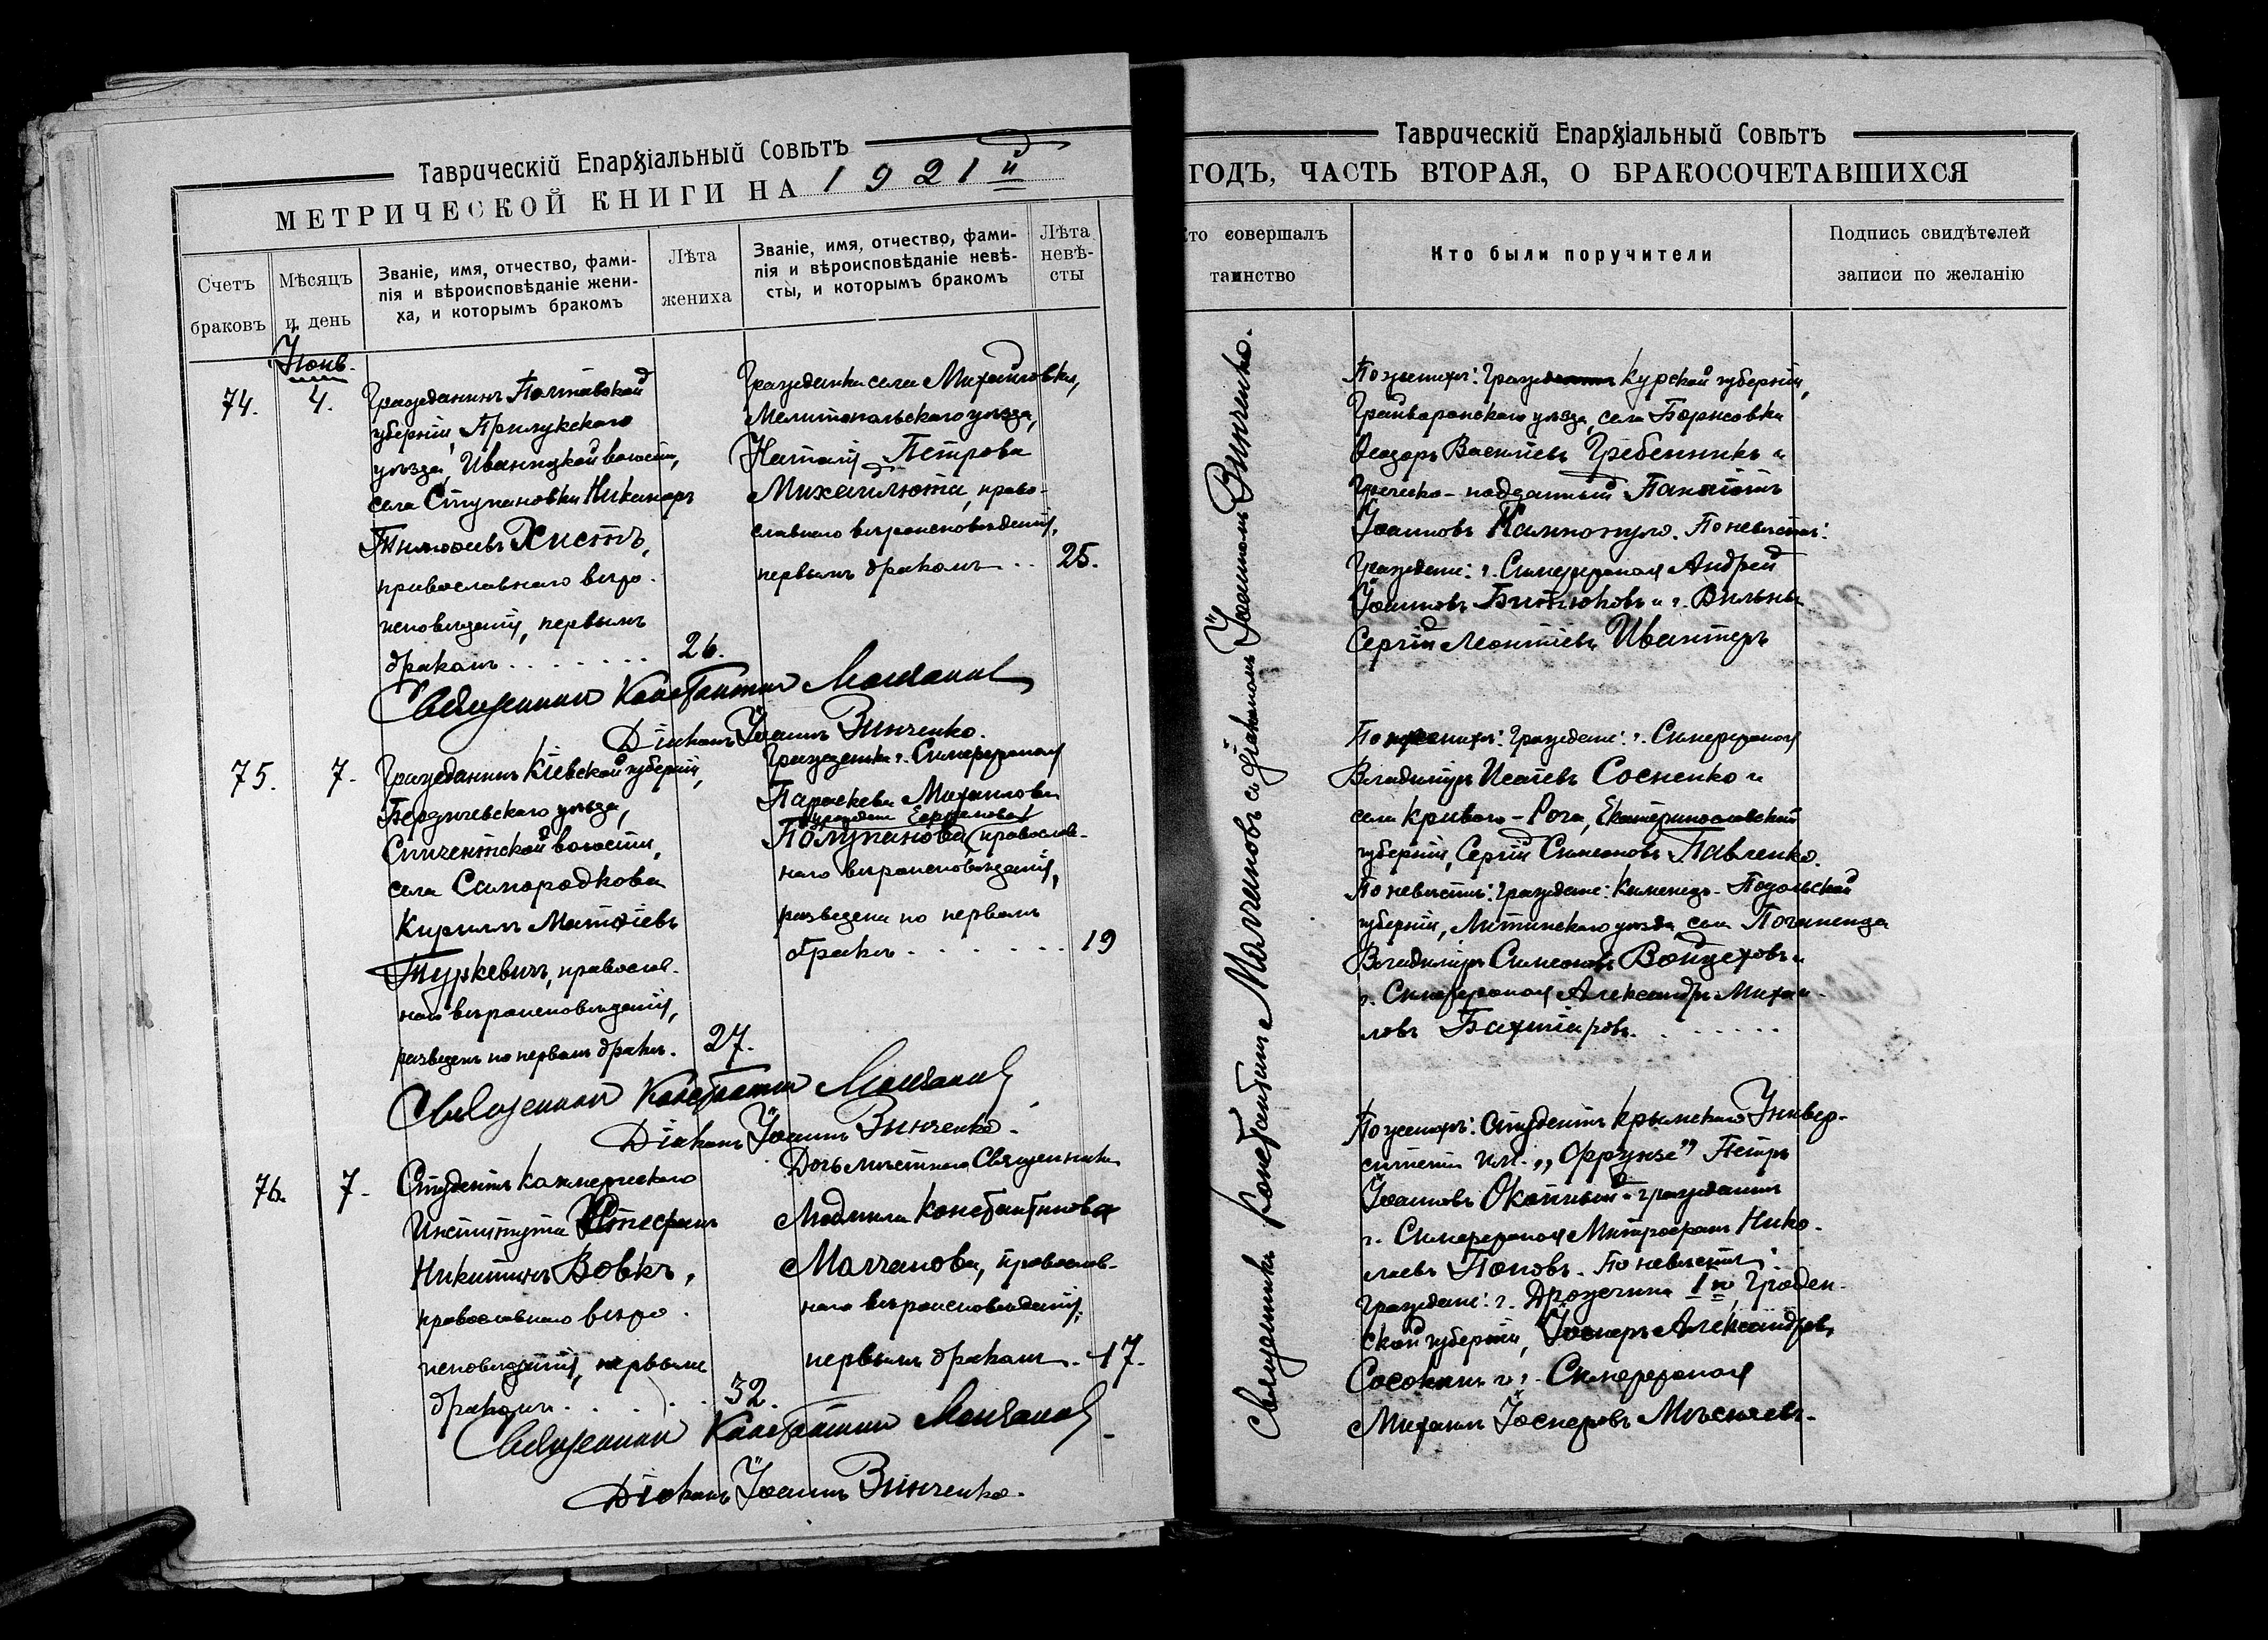 Таврическій Епархіальный Совѣтъ
МЕТРИЧЕСКОЙ КНИГИ НА 1921й
Счетъ браковъ
Мѣсяцъ и день
Званіе, имя, отчество, фами-
лія и вѣроисповѣданіе жени-
ха, и которымъ бракомъ
Лѣта жениха
Званіе, имя, отчество, фами-
лія и вѣроисповѣданіе невѣ-
сты, и которымъ бракомъ
Лѣта
невѣ-
сты
74.
4.
Гражданинъ Полтавской
губерніи, Прилукскаго
уѣзда, Иваницкой волости,
села Ступановки Никаноръ
Тимофеевъ Хистъ,
православнаго вѣро-
исповѣданія, первымъ
бракомъ . . . . . . . 26.
Гражданка села Михайловки,
Мелитопольскаго уѣзда,
Наталія Петрова
Михайлюта, право-
славнаго вѣроисповѣданія,
первымъ бракомъ . . 25.
Священникъ Константинъ Молчановъ
Діаконъ Іоаннъ Зинченко.
75.
7.
Гражданинъ Кіевской губерніи,
Бердичевскаго уѣзда,
села Самородкова
Кириллъ Матѳіевъ
Туркевичъ, православ-
наго вѣроисповѣданія,
разведенъ по первомъ бракѣ. 27.
Гражданка г. Симферополя
Параскева Михаилова
Полупанова православ-
наго вѣроисповѣданія,
разведена по первомъ
бракѣ . . . . . . . 19
Священникъ Константинъ Молчановъ
Діаконъ Іоаннъ Зинченко.
76.
7.
Студентъ Коммерческаго
Института Стефанъ
Никитинъ Вовкъ,
православнаго вѣро-
исповѣданія, первымъ
бракомъ . . . . . 32.
Дочь мѣстнаго Священника
Людмила Константинова
Молчанова, православ-
наго вѣроисповѣданія,
первымъ бракомъ. 17.
Священникъ Константинъ Молчановъ
Діаконъ Іоаннъ Зинченко.
Таврическій Епархіальный Совѣтъ
ГОДЪ, ЧАСТЬ ВТОРАЯ, О БРАКОСОЧЕТАВШИХСЯ
то совершалъ
таинство
Кто были поручители
Подпись свидѣтелей
записи по желанію
Священникъ Константинъ Молчановъ съ діакономъ Іоанномъ Зинченко.
По женихѣ: Курской губерніи,
Грайворонскаго уѣзда, села Борисовки
Ѳеодоръ Васильевъ Гребенникъ и
Греческо-подданный Панаіотъ
Іоанновъ По невѣстѣ:
Граждане: г. Симферополя Андрей
Іоанновъ Битюковъ и г. Вильны
Сергій Леонтіевъ
По женихѣ: Граждане: г. Симферополя
Владиміръ Исаіевъ Сосненко и
села Кривого-Рога, Екатеринославской
губерніи, Сергій Симеоновъ Павленко.
По невѣстѣ: Граждане: Каменецъ-Подольской
губерніи, Литинскаго уѣзда села
Владиміръ Симеоновъ Войцеховъ и
г. Симферополя Александръ Михаи-
ловъ Бахтіаровъ. . . . . . .
По женихѣ: Студентъ Крымскаго Универ-
ситета им. „Фрунзе” Петръ
Іоанновъ и гражданинъ
г. Симферополя Митрофанъ Нико-
лаевъ Поповъ. По невѣстѣ:
Граждане: г. Дрогичина Гроднен-
ской губерніи, Іосифъ Александровъ
и г. Симферополя
Михаилъ Іосифовъ